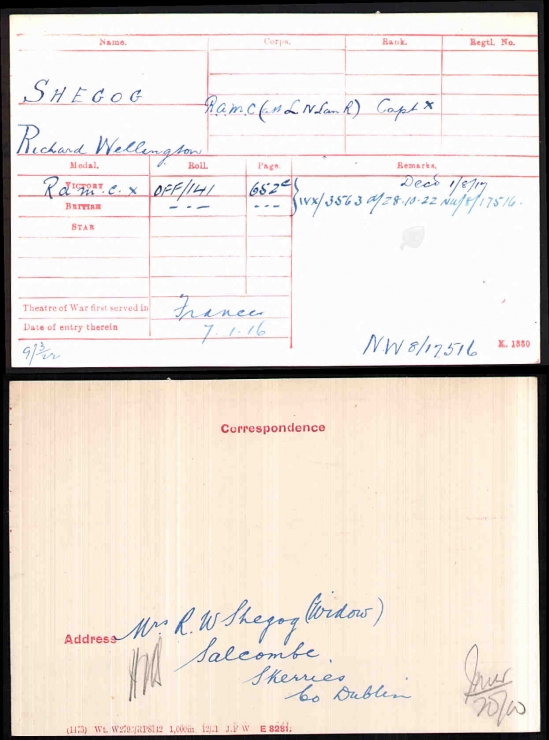 Name. Corps. Rank. Regtl. No.
SHEGOG R.A.M.C. (att L. N. Lan R) Capt x
Richard Wellington
Medal. Roll. Page. Remarks.
VICTORY R.a.m.c. x OFF/141 652c Decd 1/8/17
BRITISH - - - - - - IVX/3563 d/28.10.22 NW/8/17516.
STAR
Theatre of War first served in France
Date of entry therein 7.1.16
NW 8/17516 K. 1380
Correspondence
Address Mrs R. W Shegog (Widow)
Salcombe
Skerries
Co Dublin
E 8281.